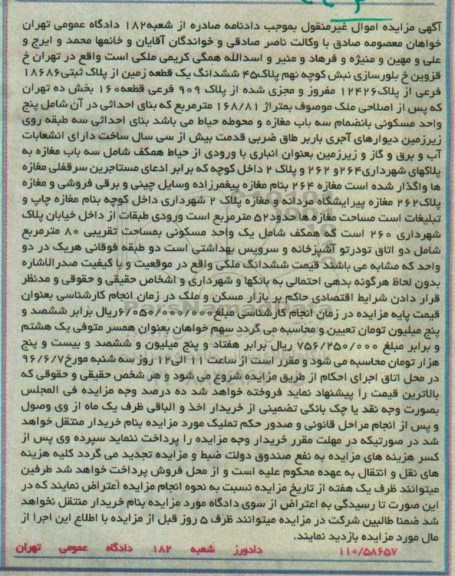 آگهی مزایده اموال غیرمنقول بموجب دادنامه صادره از شعبه۱۸۲ دادگاه عمومی تهران
خواهان معصومه صادق با وکالت ناصر صادقی و خواندگان آقایان و خانمها محمد و ایرج و
علی و مهین و منیژه و فرهاد و منیر و اسدالله همگی کریمی ملکی است واقع در تهران خ
قزوین خ بلورسازی نبش کوچه نهم پلاک۴۵ ششدانگ یک قطعه زمین از پلاک ثبتی۱۸۶۸۶
فرعی از پلاک۱۲۴۲۶ مفروز و مجزی شده از پلاک ۹۰۹ فرعی قطعه۱۶۰ بخش ده تهران
که پس از اصلاحی ملک موصوف بمتراژ ۱۶۸/۸۱ مترمربع که بنای احداثی در آن شامل پنج
واحد مسکونی بانضمام سه باب مغازه و محوطه حیاط می باشد بنای احداثی سه طبقه روی
زیرزمین دیوارهای آجری باربر طاق ضربی قدمت بیش از سی سال ساخت دارای انشعابات
آب و برق و گاز و زیرزمین بعنوان انباری با ورودی از حیاط همکف شامل سه باب مغازه به
پلاکهای شهرداری۲۶۴و ۲۶۲ و پلاک ۲ داخل کوچه که برابر ادعای مستاجرین سرقفلی مغازه
ها واگذار شده است مغازه ۲۶۴ بنام مغازه پیغمرزاده وسایل چینی و برقی فروشی و مغازه
پلاک۲۶۲ مغازه پیرایشگاه مردانه و مغازه پلاک ۲ شهرداری داخل کوچه بنام مغازه چاپ و
تبلیغات است مساحت مغازه ها حدود۵۲ مترمربع است ورودی طبقات از داخل خیابان پلاک
شهرداری ۲۶۰ است که همکف شامل یک واحد مسکونی بمساحت تقریبی ۸۰ مترمربع
شامل دو اتاق تودرتو آشپزخانه و سرویس بهداشتی است دو طبقه فوقانی هریک در دو
واحد که مشابه می باشند قیمت ششدانگ ملکی واقع در موقعیت و با کیفیت صدرالاشاره
بدون لحاظ هرگونه بدهی احتمالی به بانکها و شهرداری و اشخاص حقیقی و حقوقی و مدنظر
قرار دادن شرایط اقتصادی حاکم بر بازار مسکن و ملک در زمان انجام کارشناسی بعنوان
قیمت پایه مزایده در زمان انجام کارشناسی مبلغ۶/۰۵۰/۰۰۰/۰۰۰ریال برابر ششصد و
پنج میلیون تومان تعیین و محاسبه می گردد سهم خواهان بعنوان همسر متوفی یک هشتم
و برابر مبلغ ۷۵۶/۲۵۰/۰۰۰ ریال برابر هفتاد و پنج میلیون و ششصد و بیست و پنج
هزار تومان محاسبه می شود و مقرر است از ساعت ۱۱ الی۱۲ روز سه شنبه مورخ۹۶/۶/۷
در محل اتاق اجرای احکام از طریق مزایده شروع می شود و هر شخص حقیقی و حقوقی که
بالاترین قیمت را پیشنهاد نماید فروخته خواهد شد ده درصد وجه مزایده فی المجلس
بصورت وجه نقد یا چک بانکی تضمینی از خریدار اخذ و الباقی ظرف یک ماه از وی وصول
و پس از انجام مراحل قانونی و صدور حکم تملیک مورد مزایده بنام خریدار منتقل خواهد
شد در صورتیکه در مهلت مقرر خریدار وجه مزایده را پرداخت ننماید سپرده وی پس از
کسر هزینه های مزایده به نفع صندوق دولت ضبط و مزایده تجدید می گردد کلیه هزینه
های نقل و انتقال به عهده محکوم علیه است و از محل فروش پرداخت خواهد شد طرفین
میتوانند ظرف یک هفته از تاریخ مزایده نسبت به نحوه انجام مزایده اعتراض نمایند که در
این صورت تا رسیدگی به اعتراض از سوی دادگاه مورد مزایده بنام خریدار منتقل نخواهد
شد ضمنا طالبین شرکت در مزایده میتوانند ظرف ۵ روز قبل از مزایده با اطلاع این اجرا از
مال مورد مزایده بازدید نمایند.
۱۱۰/۵۸۶۵۷ دادورز شعبه ۱۸۲ دادگاه عمومی تهران